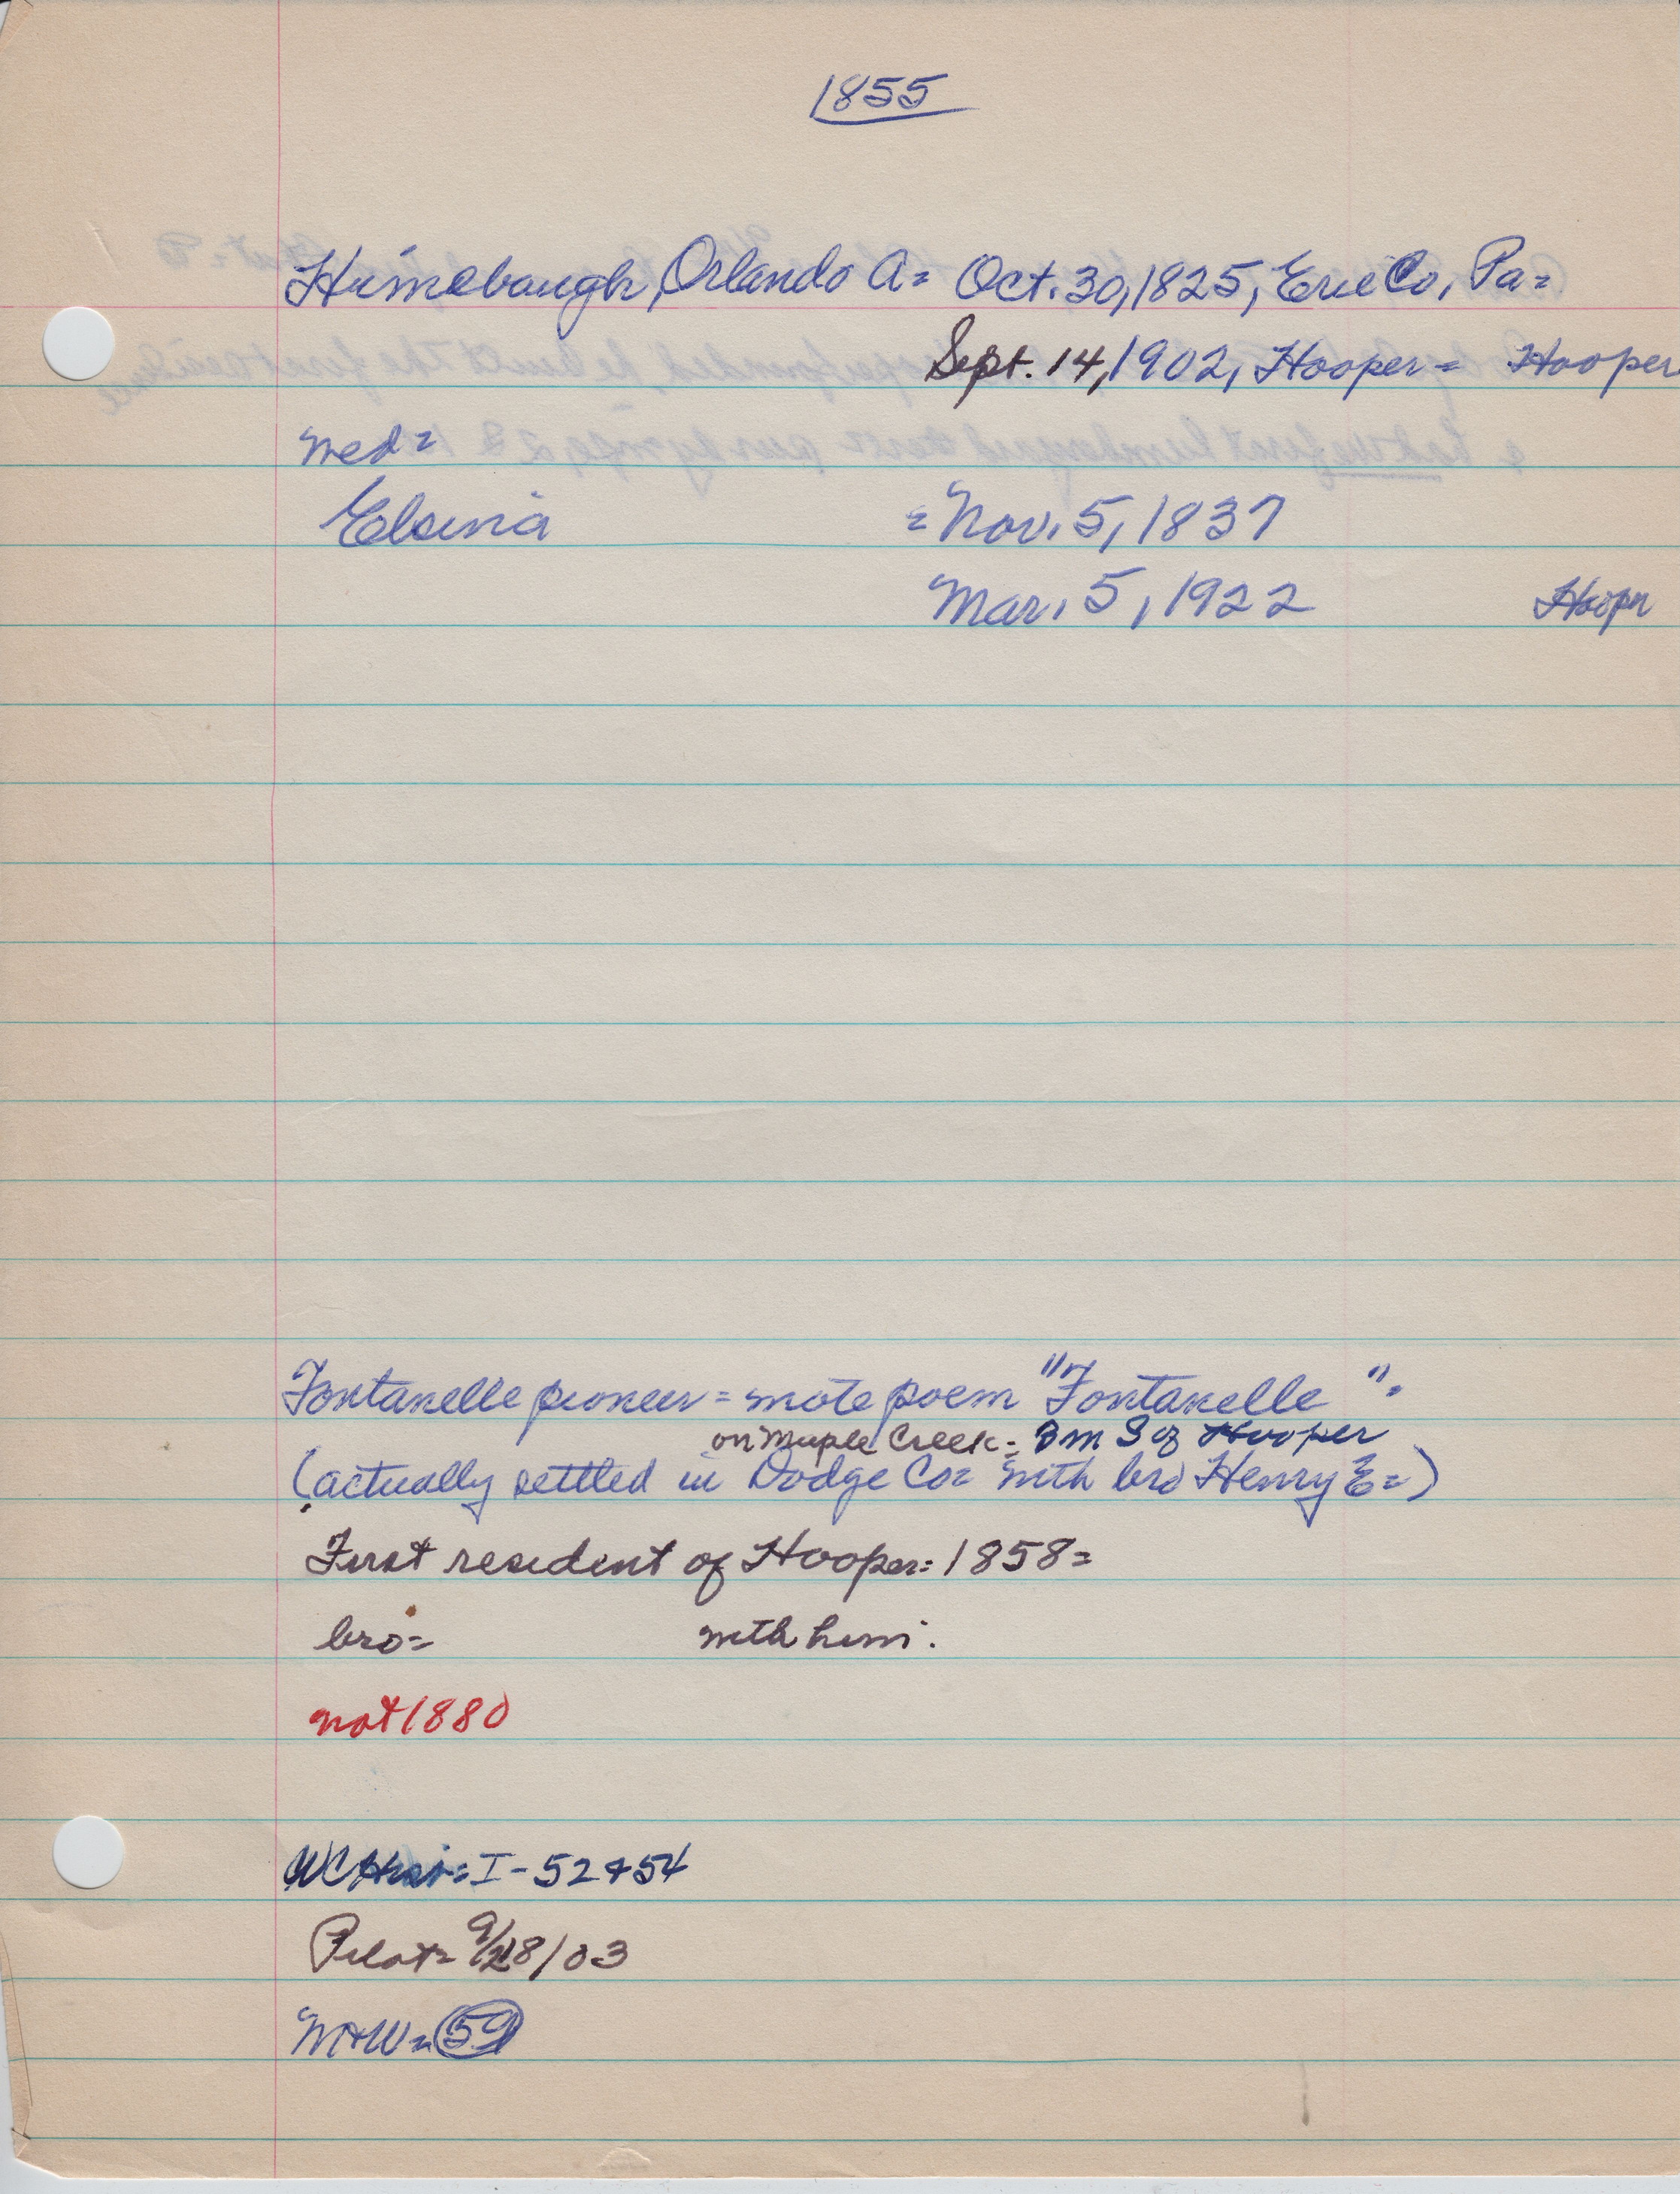 1855
Himebaugh, Orlando A= Oct. 30, 1825, Erie Co, Pa=
Sept. 14, 1902, Hooper= Hooper
med=
Elsina =Nov. 5, 1837
Mar. 5, 1922 Hooper
Fontanelle pioneer = wrote poem "Fontanelle".
on Maple Creek= 3m S of Hooper
(actually settled in Dodge Co= with bro Henry E=)
First resident of Hooper= 1858=
bro= with him.
not 1880
WC Hist= I-52+54
Pilot= 9/28/03
M+W= 59